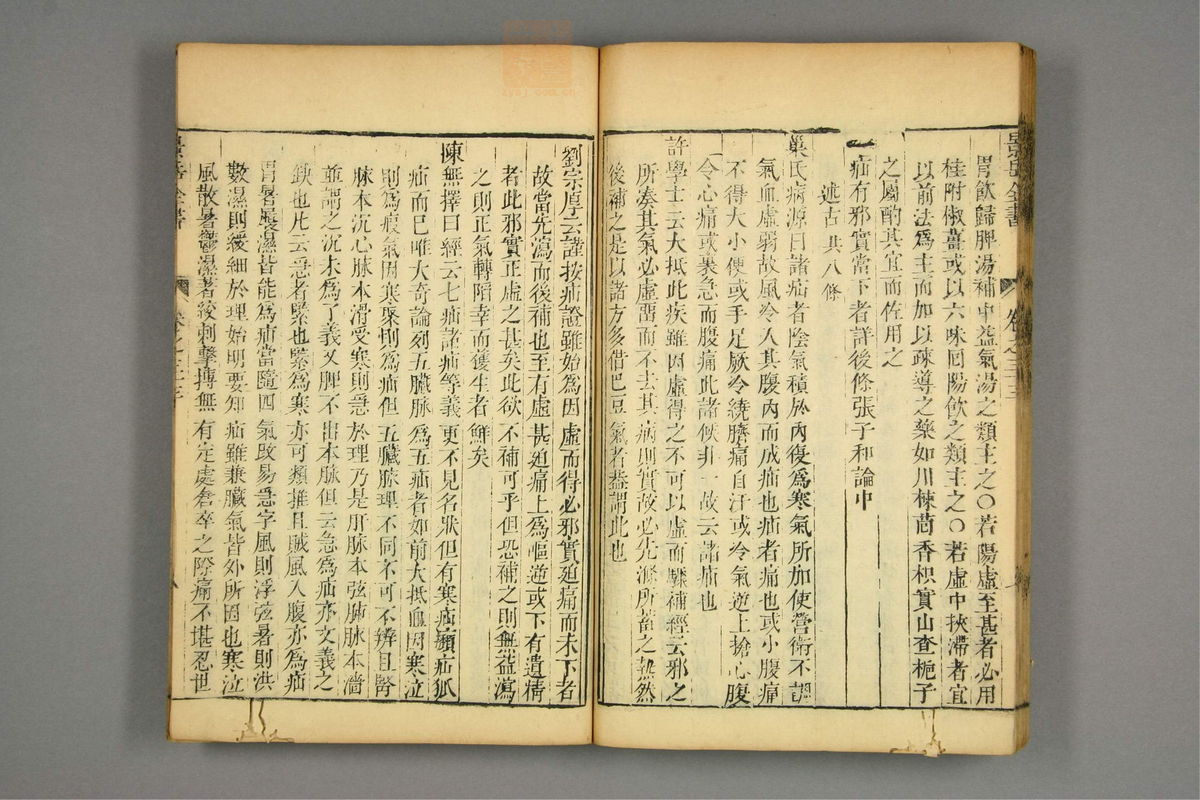 景岳全書
卷之三十三
胃飲歸脾湯補中益氣湯之類主之〇若陽虛至甚者必用
桂附椒薑或以六味回陽飲之類主之〇若虛中挾滯者宜
以前法爲主而加以疎導之藥如川楝茴香枳實山查梔子
之屬酌其宜而佐用之
一疝有邪實當下者詳後條張子和論中
述古共八條
巢氏病源曰諸疝者陰氣積於內復爲寒氣所加使營衛不調
氣血虛弱故風冷入其腹內而成疝也疝者痛也或小腹痛
不得大小便或手足厥冷繞臍痛自汗或冷氣逆上搶心腹
令心痛或裏急而腹痛此諸候非一故云諸疝也
許學士云大抵此疾雖因虛得之不可以虛而驟補經云邪之
所湊其氣必虛畱而不去其病則實故必先滌所蓄之熱然
後補之是以諸方多借巴豆氣者蓋謂此也
劉宗厚云謹按疝證雖始爲因虛而得必邪實廹痛而未下者
故當先瀉而後補也至有虛甚廹痛上爲嘔逆或下有遺精
者此邪實正虛之甚矣此欲不補可乎但恐補之則無益瀉
之則正氣轉陷幸而獲生者鮮矣
陳無擇曰經云七疝諸疝等義更不見名狀但有寒疝㿗疝狐
疝而巳唯大奇論列五臟脉爲五疝者如前大抵血因寒泣
則爲瘕氣因寒聚則爲疝但五臟脉理不同不可不辨且腎
脉本沉心脉本滑受寒則急於理乃是肝脉本弦肺脉本濇
並謂之沉未爲了義又脾不出本脉但云急爲疝亦文義之
缺也凡云急者緊也緊爲寒亦可類推且賊風入腹亦爲疝
冒暑履濕皆能爲疝當隨四氣改易急字風則浮弦暑則洪
數濕則緩細於理始明要知疝雖兼臟氣皆外所因也寒泣
風散暑鬱濕著絞刺擊搏無有定處倉卒之際痛不堪忍世
景岳全書
卷之三十三